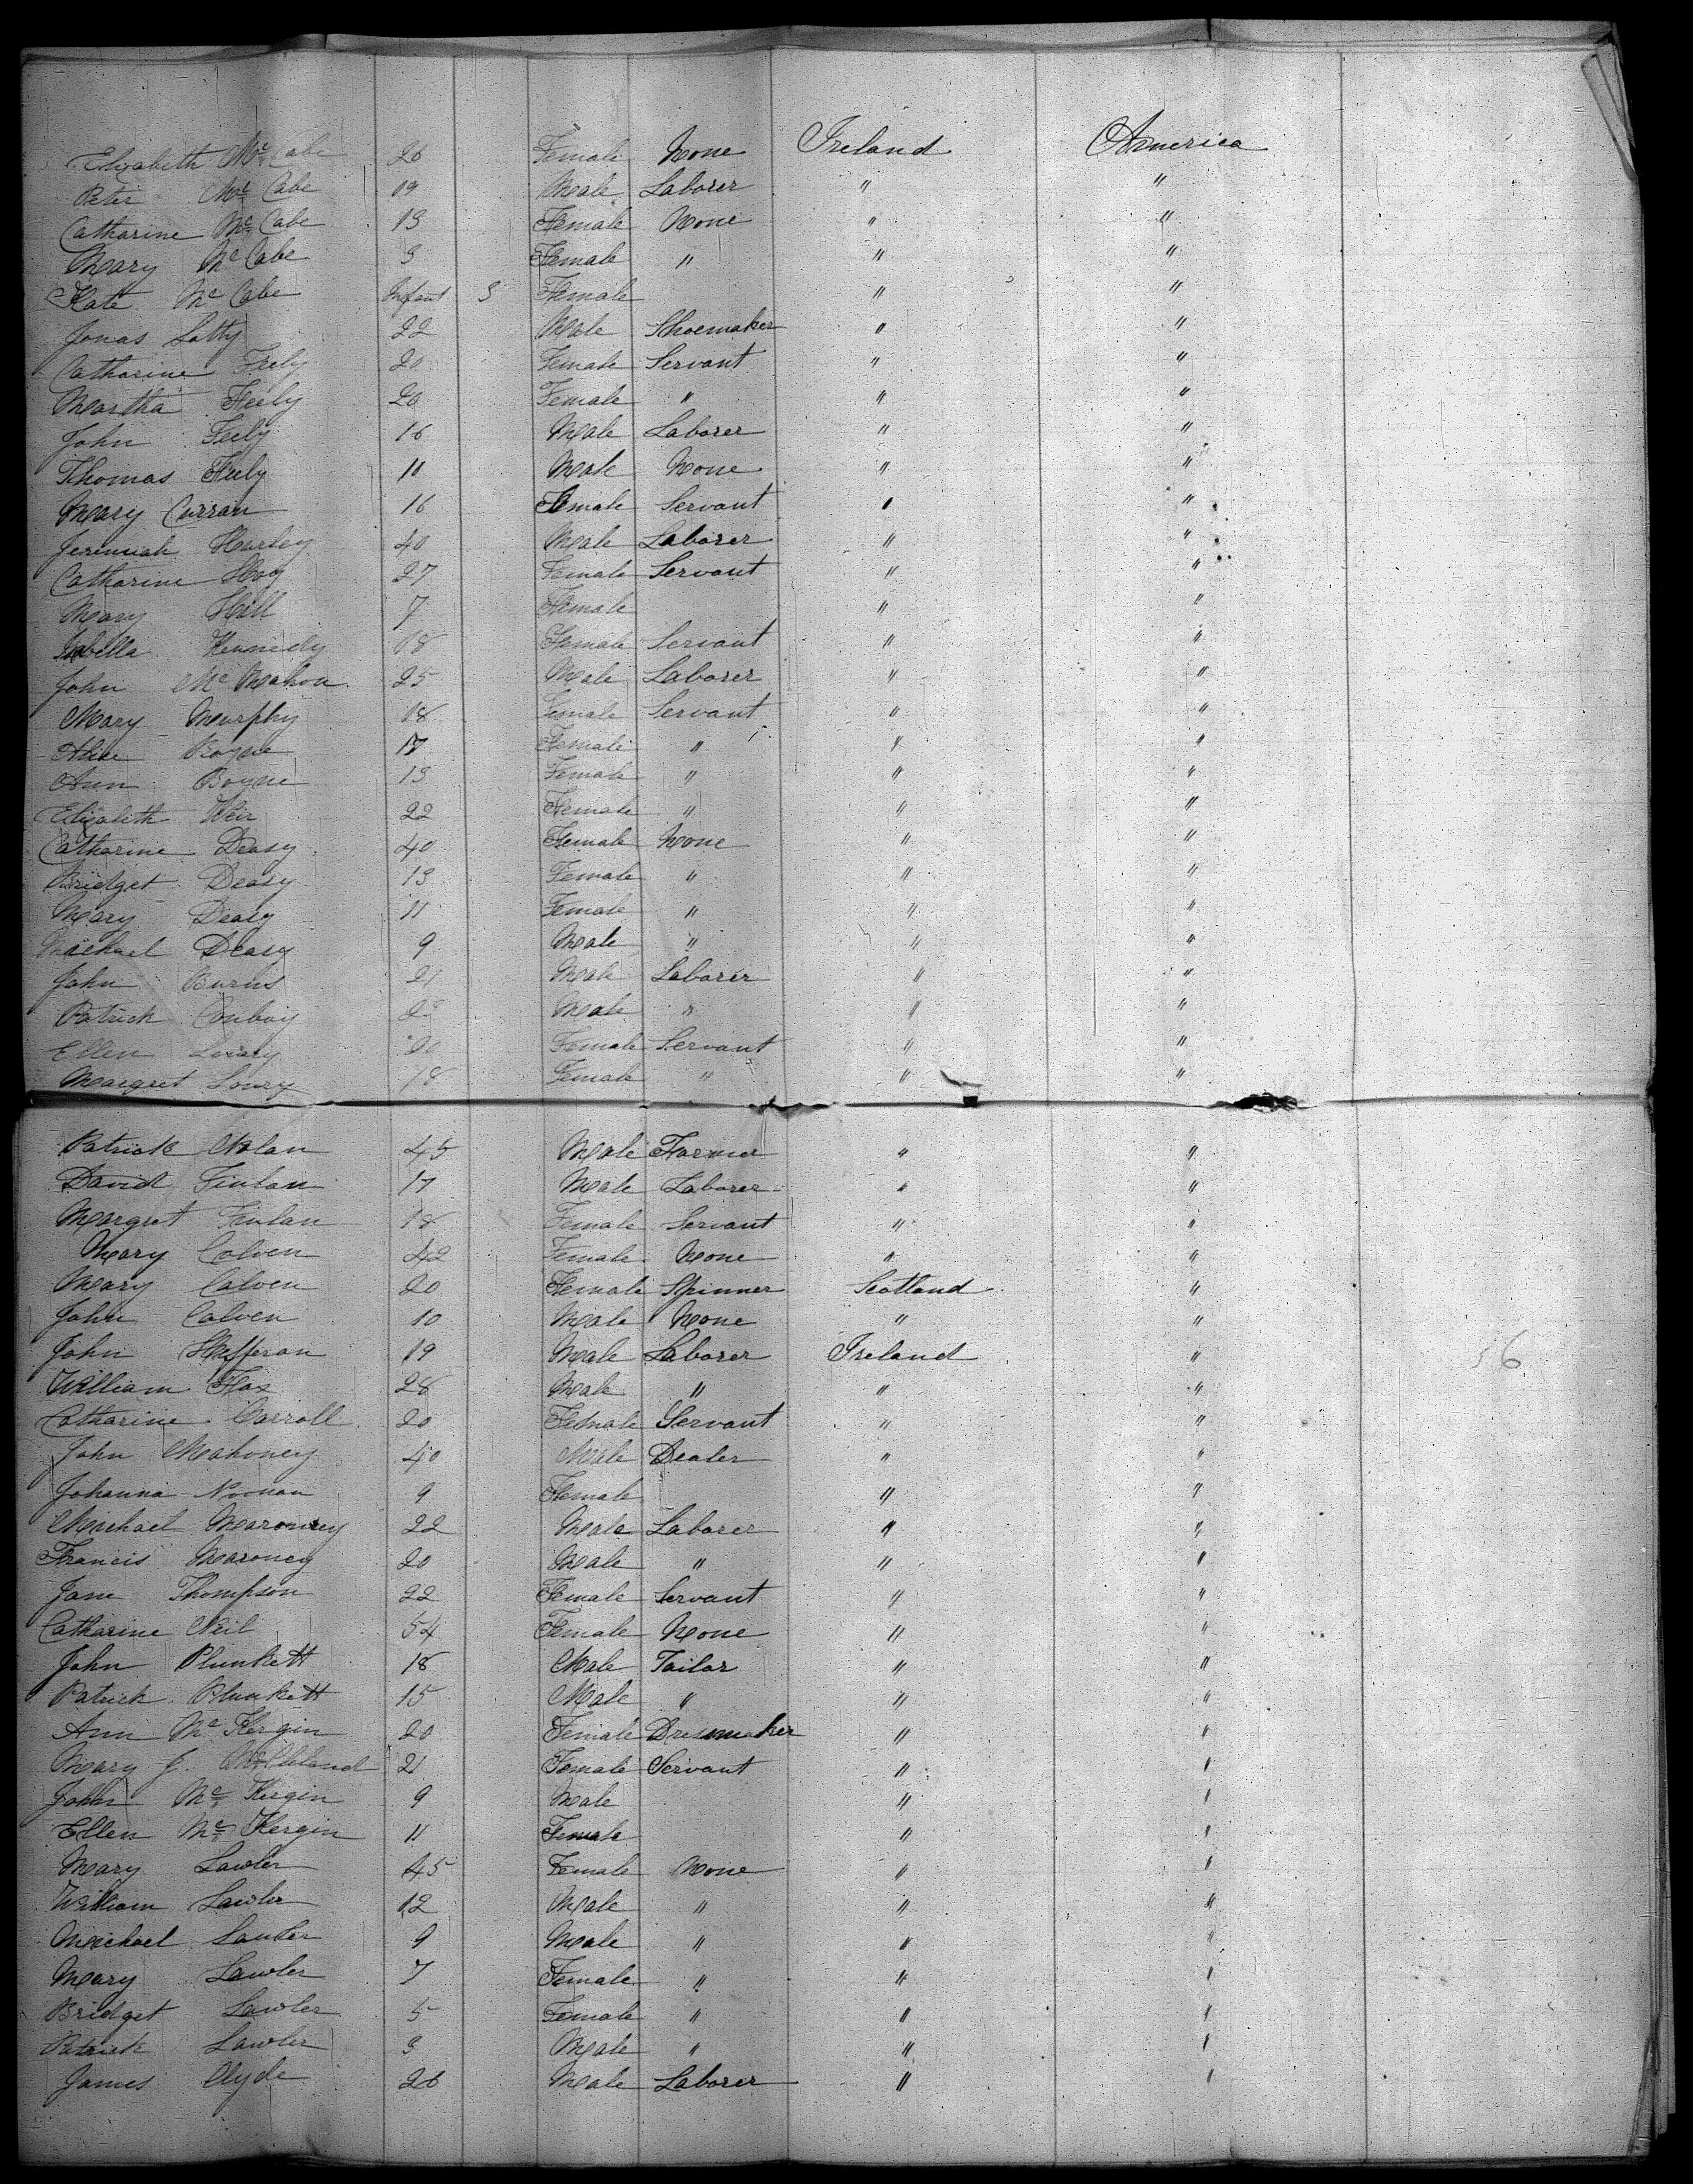 Elizabeth Mc Cabe 26 Female None Ireland America
Peter Mc Cabe 19 Male Laborer " "
Catharine Mc Cabe 13 Female None " "
Mary Mc Cabe 3 Female " " "
Kate Mc Cabe Infant 3 Female " "
Jonas Latty 22 Male Shoemaker " "
Catharine Feely 20 Female Servant " "
Martha Feely 20 Female " " "
John Feely 16 Male Laborer " "
Thomas Feely 11 Male None " "
Mary Curran 16 Female Servant " "
Jeremiah Hurley 40 Male Laborer " "
Catharine Hoy 27 Female Servant " "
Mary Hill 7 Female " "
Isabella Kennedy 18 Female Servant " "
John Mc Mahon 25 Male Laborer " "
Mary Murphy 18 Female Servant " "
Alice Boyne 17 Female " " "
Ann Boyne 13 Female " " "
Elizabeth Weir 22 Female " " "
Catharine Deasy 40 Female None " "
Bridget Deasy 13 Female " " "
Mary Deasy 11 Female " " "
Michael Deasy 9 Male " " "
John Burns 21 Male Laborer " "
Patrick Conboy Male " " "
Ellen Lowry 20 Female Servant " "
Margret Lowry 18 Female " " "
Patrick Nolan 45 Male Farmer " "
David Finlan 17 Male Laborer " "
Margret Finlan 18 Female Servant " "
Mary Calven 42 Female None " "
Mary Calven 20 Female Spinner Scotland "
John Calven 10 Male None " "
John Hefferon 19 Male Laborer Ireland " 56
William Fox 28 Male " " "
Catharine Carroll 20 Female Servant " "
John Mahoney 40 Male Dealer " "
Johanna Noonan 9 Female " "
Michael Maroney 22 Male Laborer " "
Francis Maroney 20 Male " " "
Jane Thompson 22 Female Servant " "
Catharine Neil 54 Female None " "
John Plunkett 18 Male Tailor " "
Patrick Plunkett 15 Male " " "
Ann Mc Kergin 20 Female Dressmaker " "
Mary J. McCleland 21 Female Servant " "
John Mc Kergin 9 Male " "
Ellen Mc Kergin 11 Female " "
Mary Lawler 45 Female None " "
William Lawler 12 Male " " "
Michael Lawler 9 Male " " "
Mary Lawler 7 Female " " "
Bridget Lawler 5 Female " " "
Patrick Lawler 3 Male " " "
James Clyde 26 Male Laborer " "